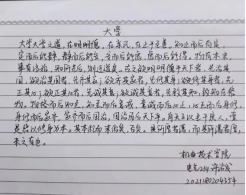 大学
大学之道，在明明德，在亲民，在止于至善。知止而后有定，
定而后能静，静而后能安，安而后能虑，虑而后能得。物有本末，
事有终始，知所先后，则近道矣。古之欲明明德于天下者，先治其
国，欲治其国者，先齐其家；欲齐其家者，先修其身；欲修其身者，先
正其心；欲正其心者，先诚其意；欲诚其意者，先致其知，致知在格
物。物格而后知至，知至而后意诚，意诚而后心正，心正而后身修，
身修而后家齐，家齐而后国治，国治而后天下平。自天子以至于庶人，壹
是皆以修身为本。其本乱而末治者，否矣。其所厚者薄，而其所薄者厚，
未之有也。
机电技术学院